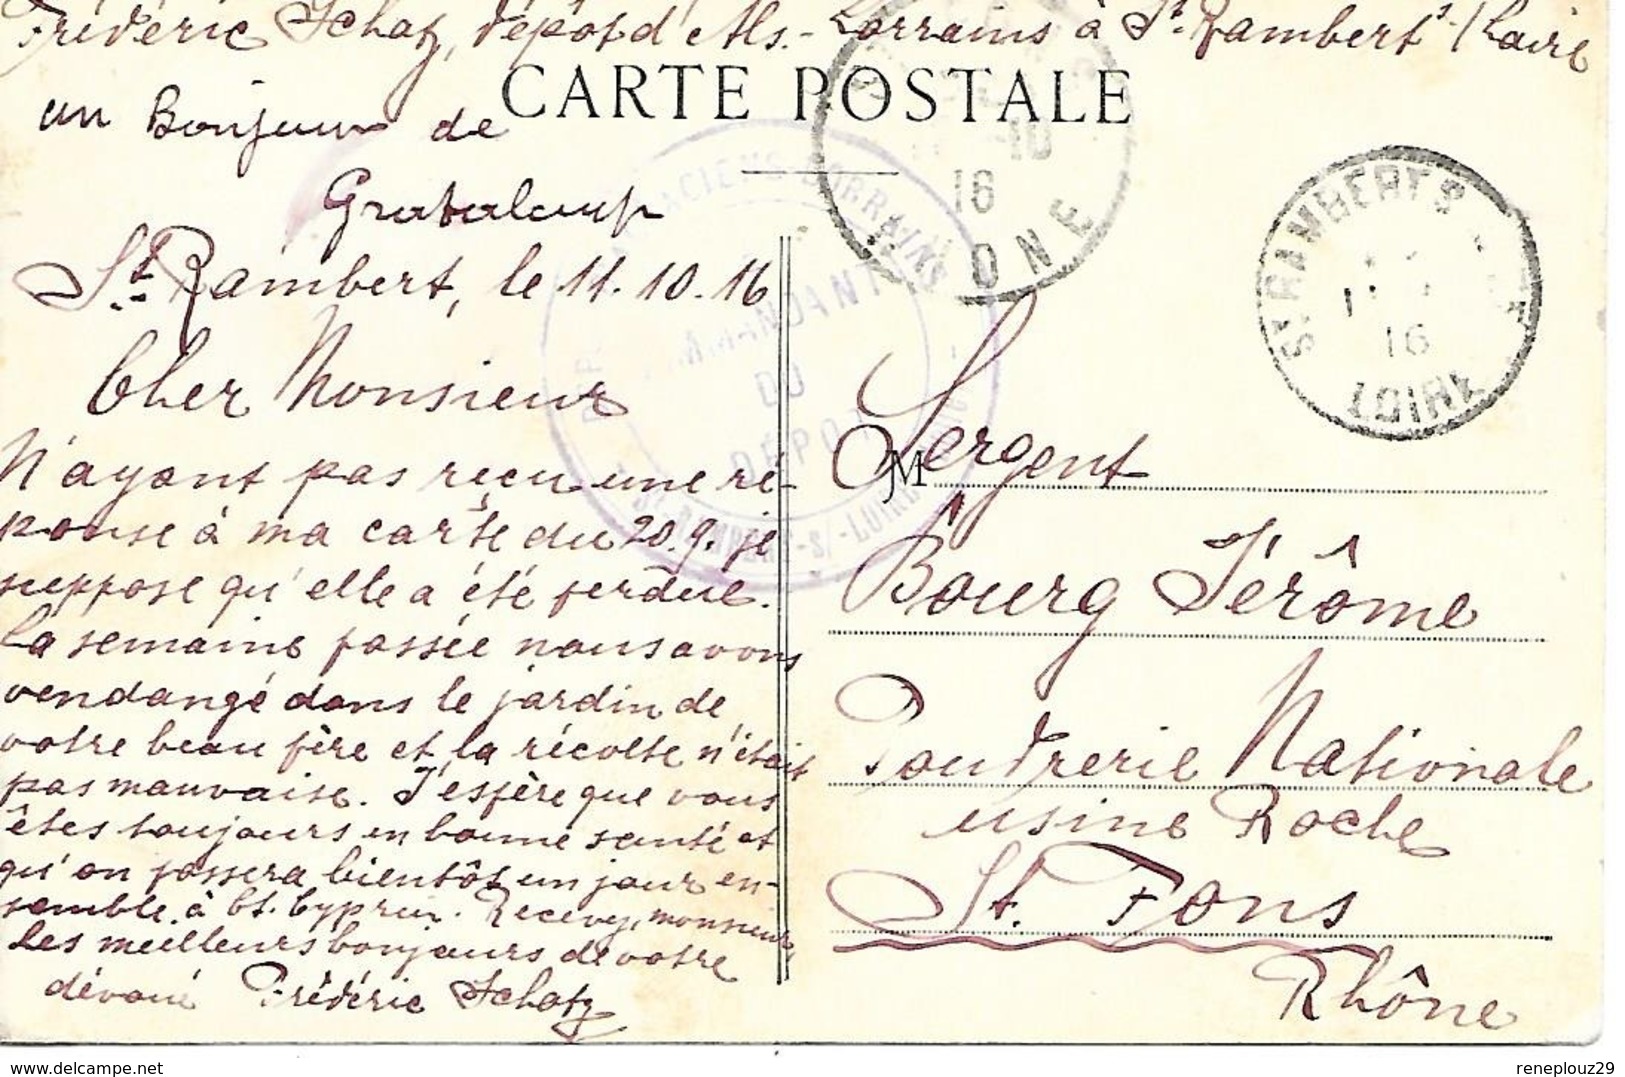 Frédéric Schatz, dépôt d'Als.-Lorrains à St. Rambert s/Loire
CARTE POSTALE
un Bonjour de
Grataloup
St. Rambert, le 11.10.16
Cher Monsieur
N'ayant pas reçu une ré-
ponse à ma carte du 20.9. je
suppose qu'elle a été perdue.
La semaine passée nous avons
vendangé dans le jardin de
votre beau fère et la récolte n'était
pas mauvaise. J'espère que vous
êtes toujours en bonne santé et
qu'on passera bientôt un jour en-
semble à St. Cyprien. Recevez, monsieur,
les meilleurs bonjours de votre
dévoué Frédéric Schatz
ALSACIENS-LORRAINS
COMMANDANT
DU
DÉPOT
ST-RAMBERT-S/-LOIRE
10
16
ONE
ST RAMBERT S
16
LOIRE
M
Sergent
Bourg Jérôme
Poudrerie Nationale
usine Roche
St. Fons
Rhône
www.delcampe.net
reneplouz29